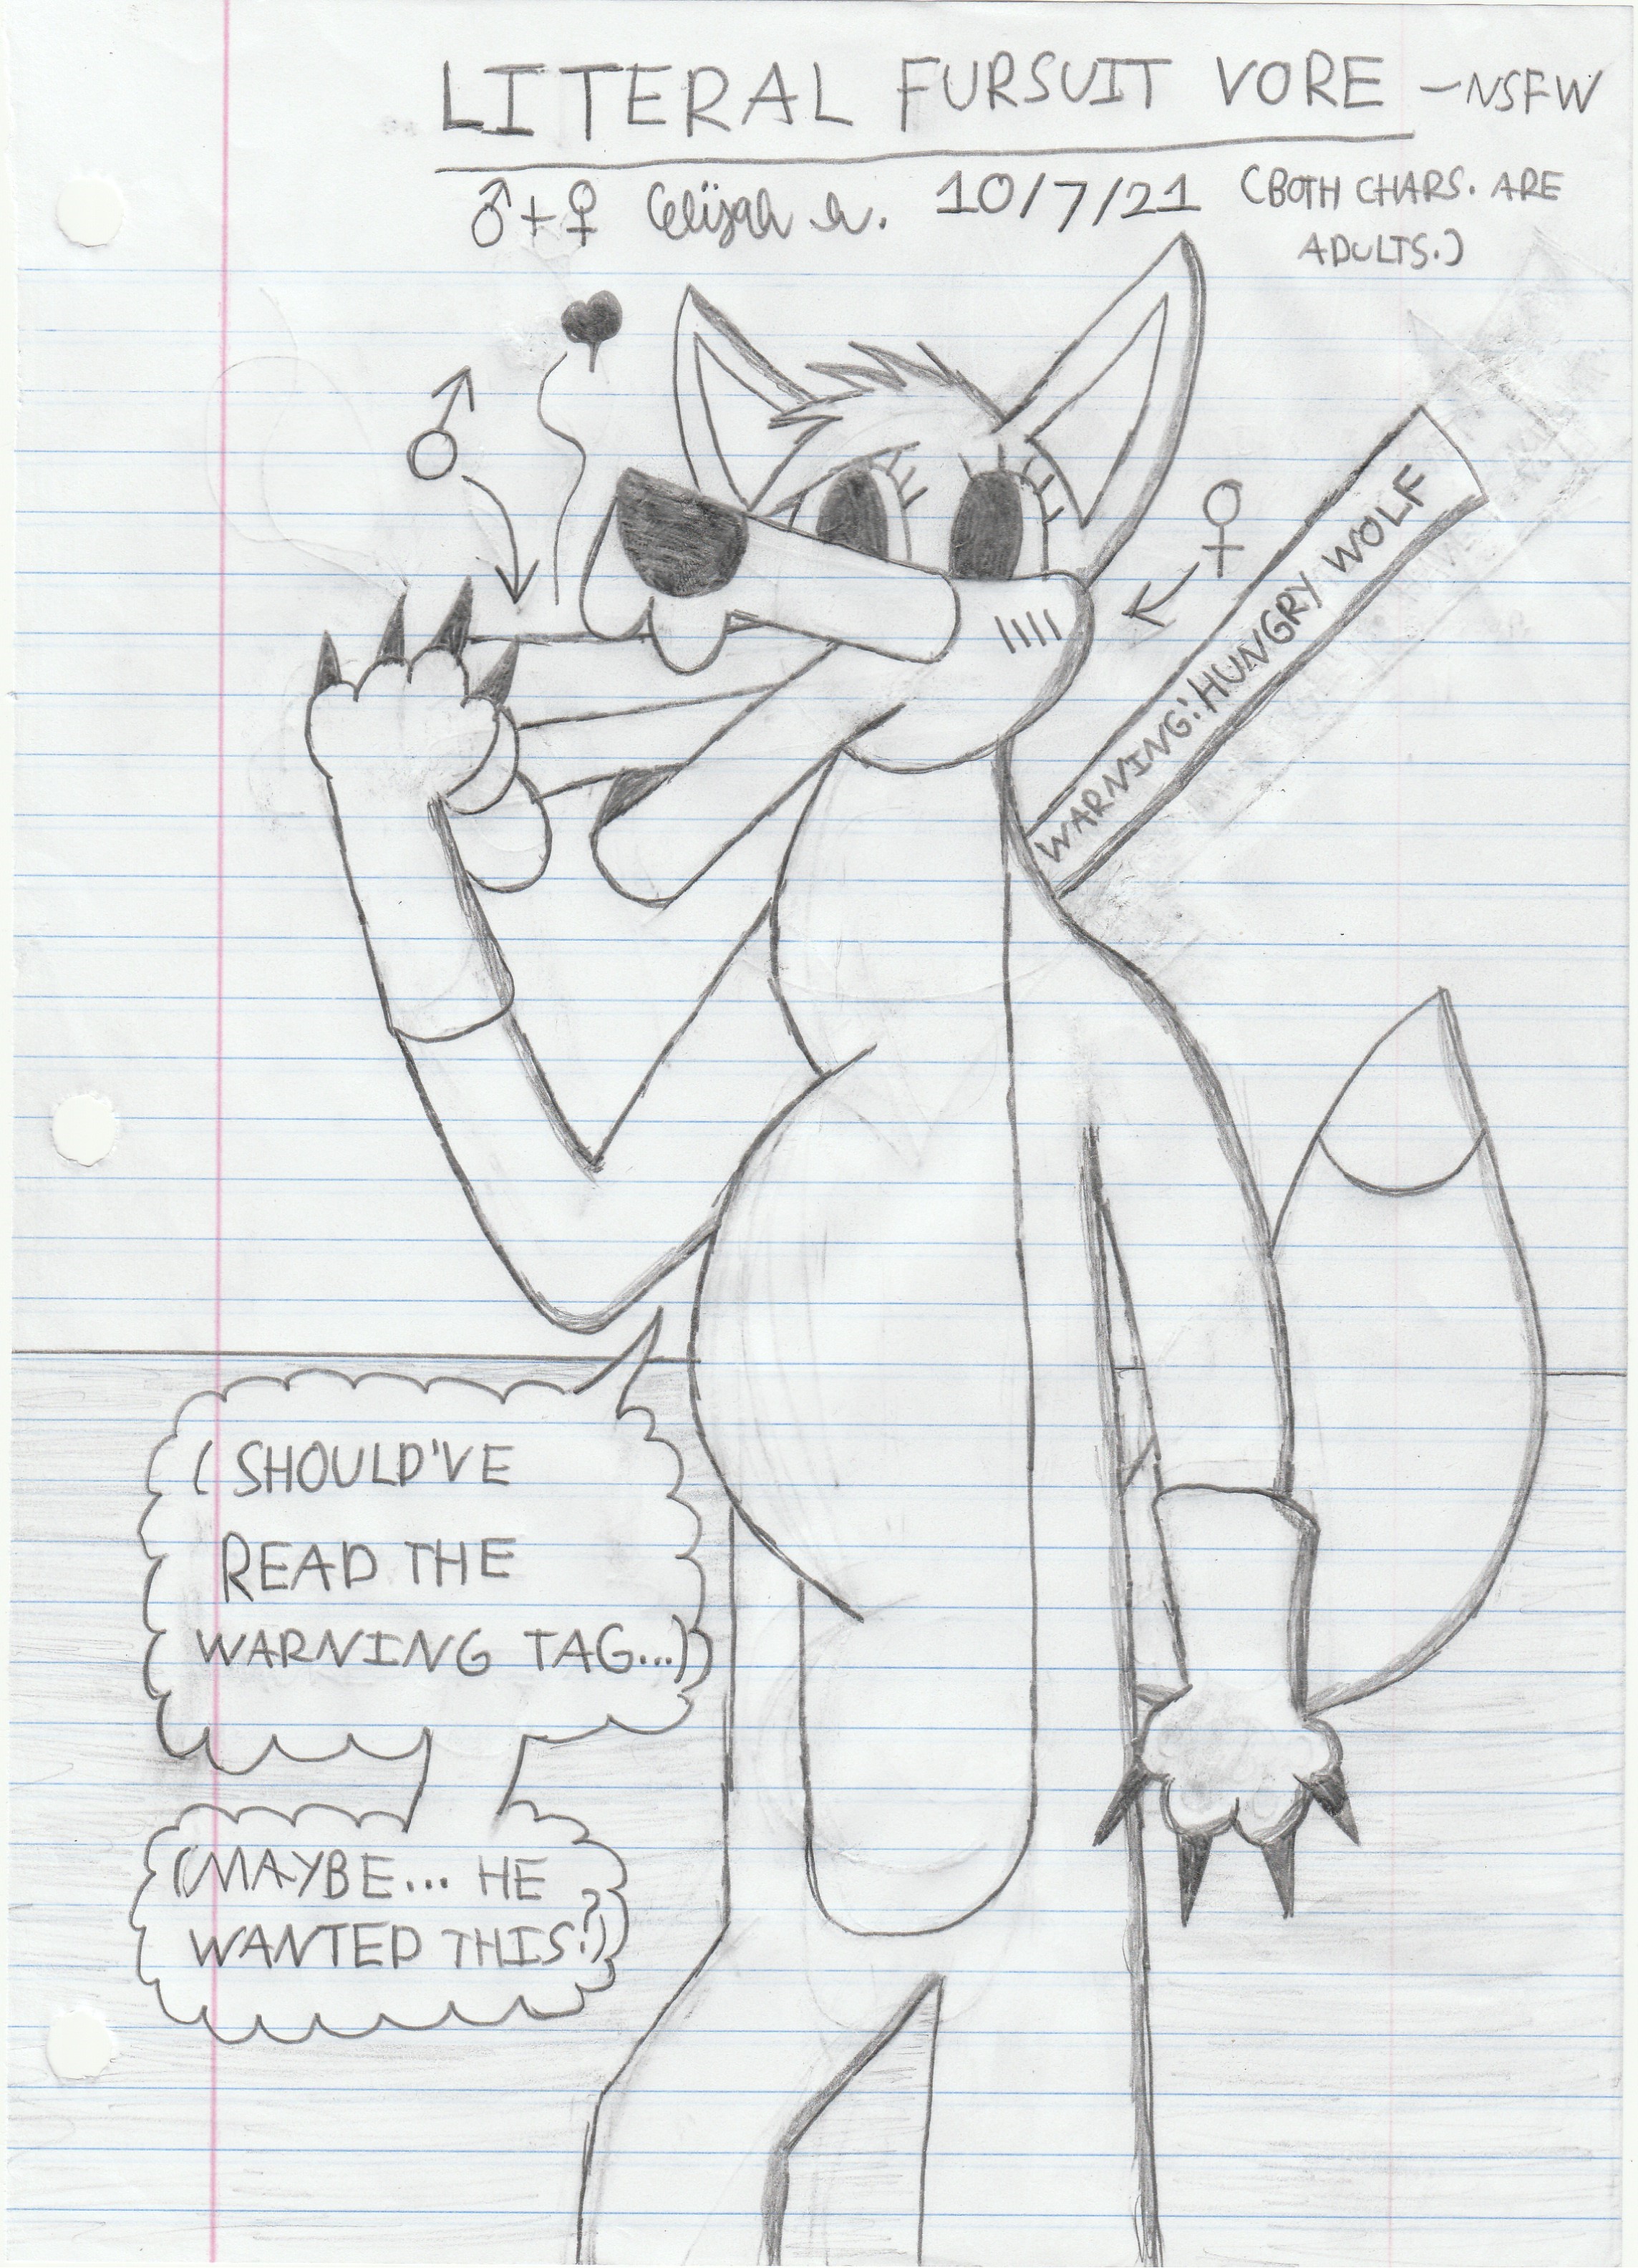 LITERAL FURSUIT VORE -NSFW
♂+♀ Elijah h. 10/7/21 (BOTH CHARS. ARE
ADULTS.)
♂
♀
WARNING: HUNGRY WOLF
(SHOULD'VE
READ THE
WARNING TAG...)
(MAYBE... HE
WANTED THIS?)